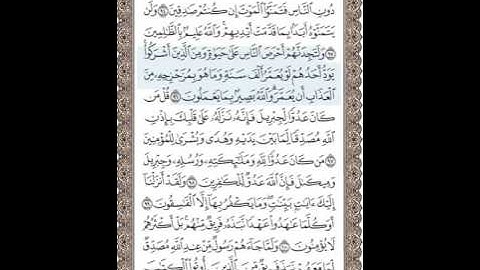 دُونِ ٱلنَّاسِ فَتَمَنَّوُا۟ ٱلْمَوْتَ إِن كُنتُمْ صَٰدِقِينَ ٩٤ وَلَن
يَتَمَنَّوْهُ أَبَدًۢا بِمَا قَدَّمَتْ أَيْدِيهِمْ وَٱللَّهُ عَلِيمٌۢ بِٱلظَّٰلِمِينَ
٩٥ وَلَتَجِدَنَّهُمْ أَحْرَصَ ٱلنَّاسِ عَلَىٰ حَيَوٰةٍ وَمِنَ ٱلَّذِينَ أَشْرَكُوا۟
يَوَدُّ أَحَدُهُمْ لَوْ يُعَمَّرُ أَلْفَ سَنَةٍ وَمَا هُوَ بِمُزَحْزِحِهِۦ مِنَ
ٱلْعَذَابِ أَن يُعَمَّرَ وَٱللَّهُ بَصِيرٌۢ بِمَا يَعْمَلُونَ ٩٦ قُلْ مَن
كَانَ عَدُوًّا لِّجِبْرِيلَ فَإِنَّهُۥ نَزَّلَهُۥ عَلَىٰ قَلْبِكَ بِإِذْنِ
ٱللَّهِ مُصَدِّقًا لِّمَا بَيْنَ يَدَيْهِ وَهُدًى وَبُشْرَىٰ لِلْمُؤْمِنِينَ
٩٧ مَن كَانَ عَدُوًّا لِّلَّهِ وَمَلَٰٓئِكَتِهِۦ وَرُسُلِهِۦ وَجِبْرِيلَ
وَمِيكَىٰلَ فَإِنَّ ٱللَّهَ عَدُوٌّ لِّلْكَٰفِرِينَ ٩٨ وَلَقَدْ أَنزَلْنَآ
إِلَيْكَ ءَايَٰتٍۭ بَيِّنَٰتٍ وَمَا يَكْفُرُ بِهَآ إِلَّا ٱلْفَٰسِقُونَ ٩٩
أَوَكُلَّمَا عَٰهَدُوا۟ عَهْدًا نَّبَذَهُۥ فَرِيقٌ مِّنْهُم بَلْ أَكْثَرُهُمْ
لَا يُؤْمِنُونَ ١٠٠ وَلَمَّا جَآءَهُمْ رَسُولٌ مِّنْ عِندِ ٱللَّهِ مُصَدِّقٌ
لِّمَا مَعَهُمْ نَبَذَ فَرِيقٌ مِّنَ ٱلَّذِينَ أُوتُوا۟ ٱلْكِتَٰبَ